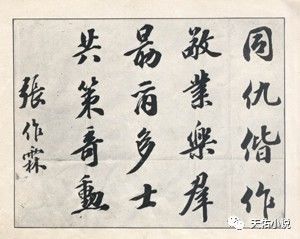 同仇偕作
敬業樂群
勗爾多士
共策奇勳
張作霖
天佑小说